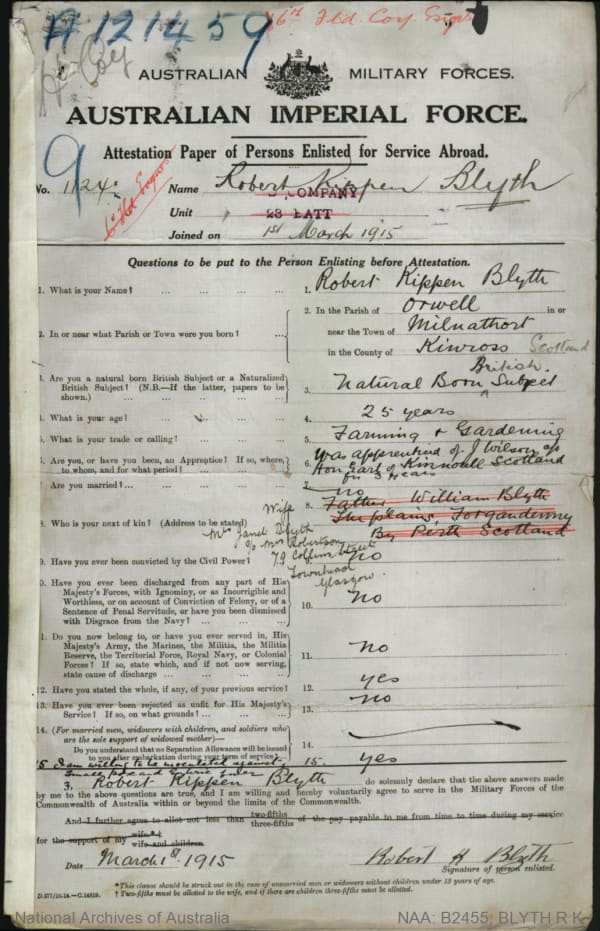 A121459
6th Fld. Coy. Engrs
AUSTRALIAN MILITARY FORCES.
AUSTRALIAN IMPERIAL FORCE.
Attestation Paper of Persons Enlisted for Service Abroad.
9
No. 1124 Name Robert Kippen Blyth
6 Fld Engrs
COMPANY
Unit 23 BATT
Joined on 1st March 1915
Questions to be put to the Person Enlisting before Attestation.
1. What is your Name? 1. Robert Kippen Blyth
2. In or near what Parish or Town were you born? 2. In the Parish of Orwell in or
near the Town of Milnathort
in the County of Kinross Scotland
3. Are you a natural born British Subject or a Naturalized British.
British Subject? (N.B.—If the latter, papers to be 3. Natural Born Subject
shown.)
4. What is your age? 4. 25 years
5. What is your trade or calling? 5. Farming + Gardening
6. Are you, or have you been, an Apprentice? If so, where, 6. Was apprenticed of J Wilson c/o
to whom, and for what period? Hon Earl of Kinnoull Scotland
for 3 years
7. Are you married? 7. no
8. Who is your next of kin? (Address to be stated) 8. Father William Blyth
The plains, Forgandenny
By Perth Scotland
Wife
Mrs Janet Blyth
c/o Mrs Robertson
79 Collins Street
Townhead
Glasgow.
9. Have you ever been convicted by the Civil Power? 9. no
10. Have you ever been discharged from any part of His
Majesty's Forces, with Ignominy, or as Incorrigible and
Worthless, or on account of Conviction of Felony, or of a
Sentence of Penal Servitude, or have you been dismissed
with Disgrace from the Navy? 10. no
11. Do you now belong to, or have you ever served in, His
Majesty's Army, the Marines, the Militia, the Militia
Reserve, the Territorial Force, Royal Navy, or Colonial
Forces? If so, state which, and if not now serving,
state cause of discharge 11. no
12. Have you stated the whole, if any, of your previous service? 12. yes
13. Have you ever been rejected as unfit for His Majesty's
Service? If so, on what grounds? 13. no
14. (For married men, widowers with children, and soldiers who
are the sole support of widowed mother)—
Do you understand that no Separation Allowance will be issued
to you after embarkation during your term of service? 14.
15 I am willing to be inoculated against 15. yes
Small Pox and Enteric fever
I, Robert Kippen Blyth do solemnly declare that the above answers made
by me to the above questions are true, and I am willing and hereby voluntarily agree to serve in the Military Forces of the
Commonwealth of Australia within or beyond the limits of the Commonwealth.
And I further agree to allot not less than two-fifths three-fifths of the pay payable to me from time to time during my service
for the support of my wife*† wife and children.
Date March 1st 1915 Robert K Blyth
Signature of person enlisted.
*This clause should be struck out in the case of unmarried men or widowers without children under 18 years of age.
† Two-fifths must be allotted to the wife, and if there are children three-fifths must be allotted.
National Archives of Australia NAA: B2455, BLYTH R K